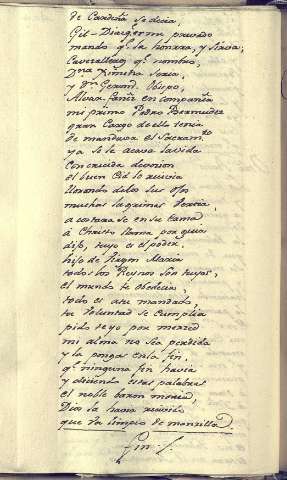 de Cardeña se decia,
Gil-Diaz er mi privado
mando q.e la honrara, y sirva;
Cavalleros q.e nombro,
D.na Ximena Seria
y D.n Geron.mo Obispo,
Alvar-fañez en compañia
mi primo Pedro Bermudez
gran Cargo de ello tenia
demandava el Sacram.to
ya se le acava la vida
Con crecida devocion
el buen Cid lo recivia
llorando de los sus ojos
muchas lagrimas vertia,
acostara se en su cama
à Christo llama por guia
dijo, tuyo es el poder,
hijo de Virgen Maria
todos los Reynos son tuyos,
el mundo te obedecia;
todo es a tu mandado,
tu Voluntad se cumplia
pido te yo por merced
mi alma no sea perdida
y la pongas en la fin,
q.e ninguna fin havia
y diciendo estas palabras
el noble baron moria,
Dios la havia recivido
que va limpio de mansilla.
Fin.